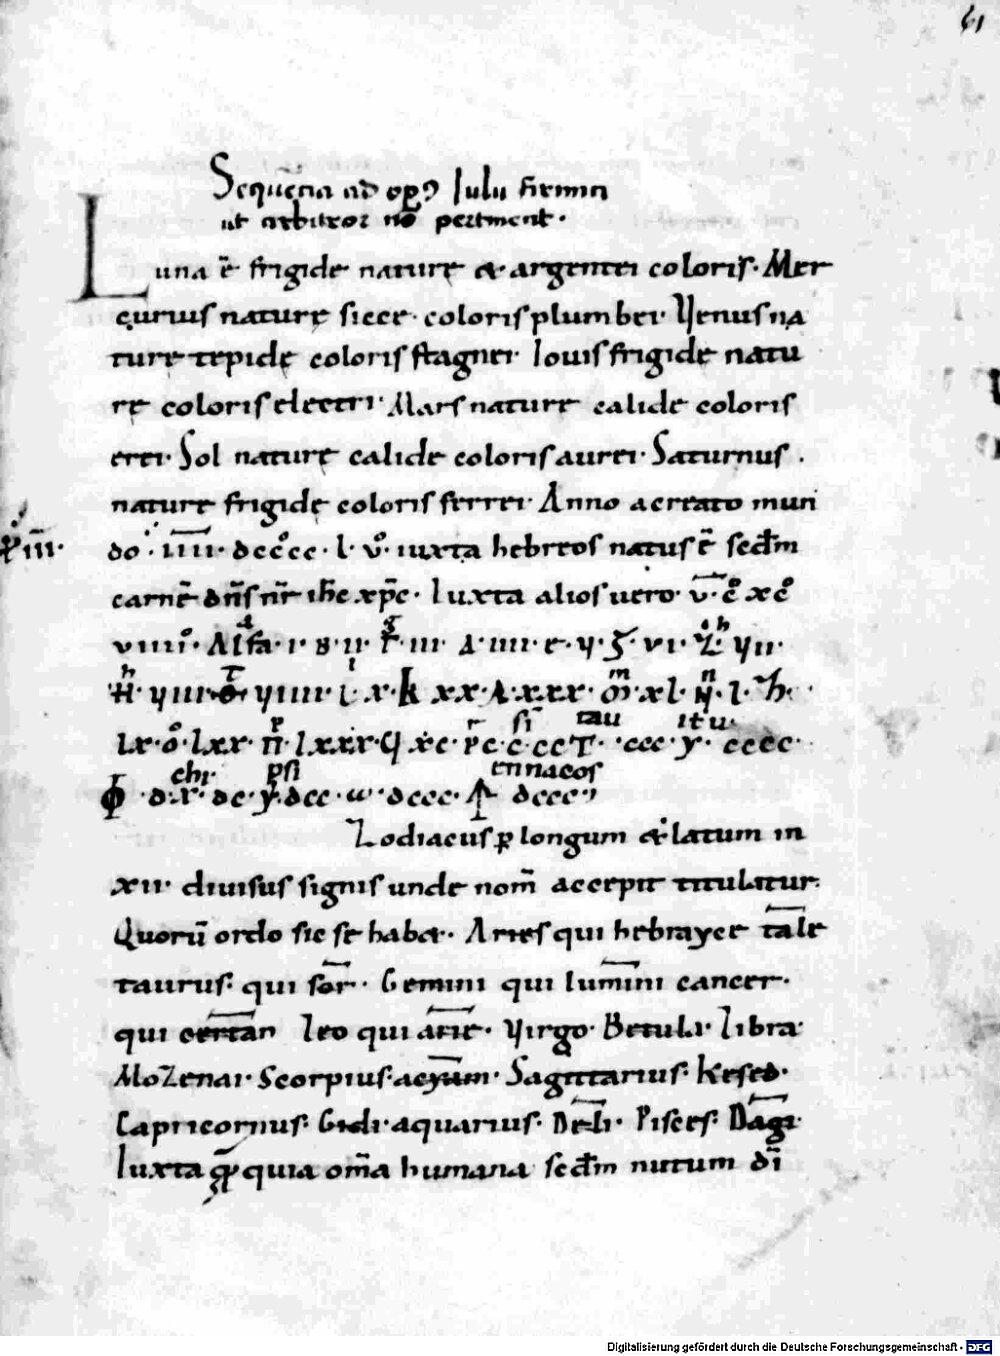 61
Sequẽtia ad opꝰ Iulii firmici
ut arbitror nõ pertinent·
Luna ẽ frigide naturę & argentei coloris· Mer
curius naturę sicce· coloris plumbei· Venus na
turę tepidę coloris stagnei· Iouis frigidę natu
rę coloris electri· Mars naturę calide coloris
erei· Sol naturę calide coloris aurei· Saturnus·
naturę frigidę coloris ferrei· Anno a creato mun
do· IIII· dcccc· l· v̊· iuxta hebreos natus ẽ scd̃m
carnẽ dñs nr̃ ih̃c xp̃c· Iuxta alios uero· v̄·
viiii· Alfa· i·
lx· o· lxx· π· lxxx· q· xc· c· cc T· ccc· y· cccc·
si tau
chi· psi ennacos
Φ· d· x· dc· dcc· ω· dccc· ↑ dcccc
Zodiacus ꝑ longum & latum in
xii· diuisus signis unde nom̃ accepit titulatur·
Quorũ ordo sic se habet· Aries qui hebrayce tale
taurus· qui sor· Gemini qui lumini cancer·
qui certan leo qui arie· Virgo· Betula· Libra
Mozenai· Scorpius· acyam· Sagittarius· Kesed·
Capricornus· Gidi· aquarius· Deli· Pisces· Dagi·
Iuxta quia om̃a humana scd̃m nutum dĩ
Digitalisierung gefördert durch die Deutsche Forschungsgemeinschaft - DFG